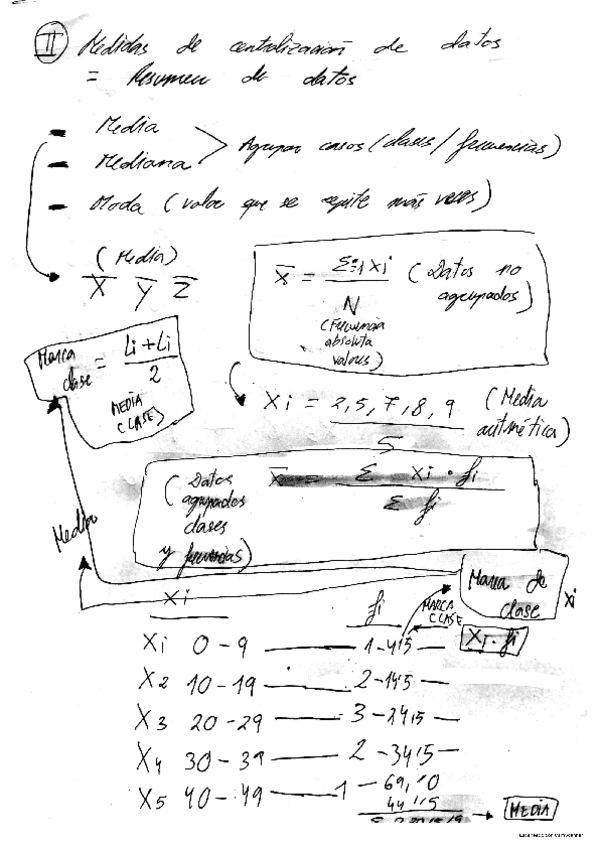 II Medidas de centralización de datos
= Resumen de datos
- Media
- Mediana
Agrupar casos (clases / frecuencias)
- Moda (valor que se repite más veces)
(Media)
X̄ Y̅ Z̅
X̄ = Σi=1 Xi / N (Datos no agrupados)
(Frecuencia absoluta valores)
Marca clase = Li + Li / 2
MEDIA CLASE)
Xi = 2, 5, 7, 8, 9 / 5 (Media aritmética)
(Datos agrupados clases y frecuencias)
X̄ = Σ Xi · fi / Σ fi
Media
Marca de clase xi
Xi fi MARCA CLASE Xi · fi
Xi 0 - 9 1 - 4'5
X2 10 - 19 2 - 14'5
X3 20 - 29 3 - 24'5
X4 30 - 39 2 - 34'5
X5 40 - 49 1
44'5
MEDIA